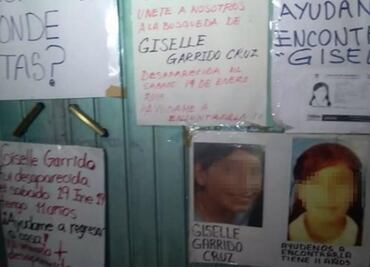 ONDE
TAS?
UNETE A NOSOTROS
A LA BUSQUEDA DE
GISELLE
GARRIDO CRUZ
DESAPARECIDA EL
SABADO 19 DE ENERO
2019
AYUDAME A
ENCONTRARLA
AYUDAN
ENCONTRA
"GISEL
Giselle Garrido
fui desaparecida
el sabado 19 Ene 19
tengo 11 años
¡Ayudame a regresar
a casa!
GISELLE
GARRIDO
CRUZ
AYUDENOS A
ENCONTRARLA
TIENE 11 AÑOS